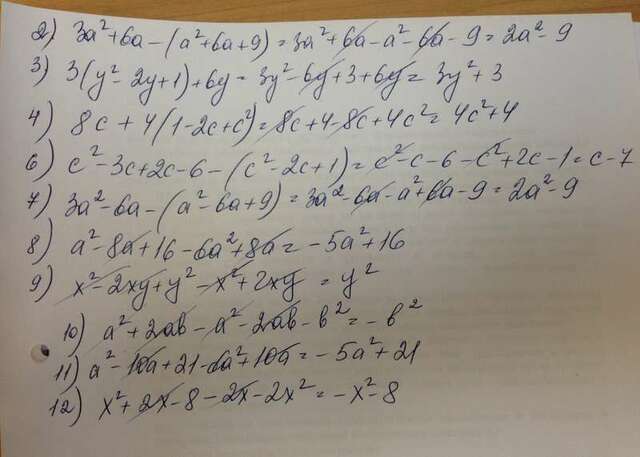 2) 3a²+6a-(a²+6a+9)=3a²+6a-a²-6a-9=2a²-9
3) 3(y²-2y+1)+6y=3y²-6y+3+6y=3y²+3
4) 8c+4(1-2c+c²)=8c+4-8c+4c²=4c²+4
6) c²-3c+2c-6-(c²-2c+1)=c²-c-6-c²+2c-1=c-7
7) 3a²-6a-(a²-6a+9)=3a²-6a-a²+6a-9=2a²-9
8) a²-8a+16-6a²+8a=-5a²+16
9) x²-2xy+y²-x²+2xy=y²
10) a²+2ab-a²-2ab-b²=-b²
11) a²-10a+21-6a²+10a=-5a²+21
12) x²+2x-8-2x-2x²=-x²-8